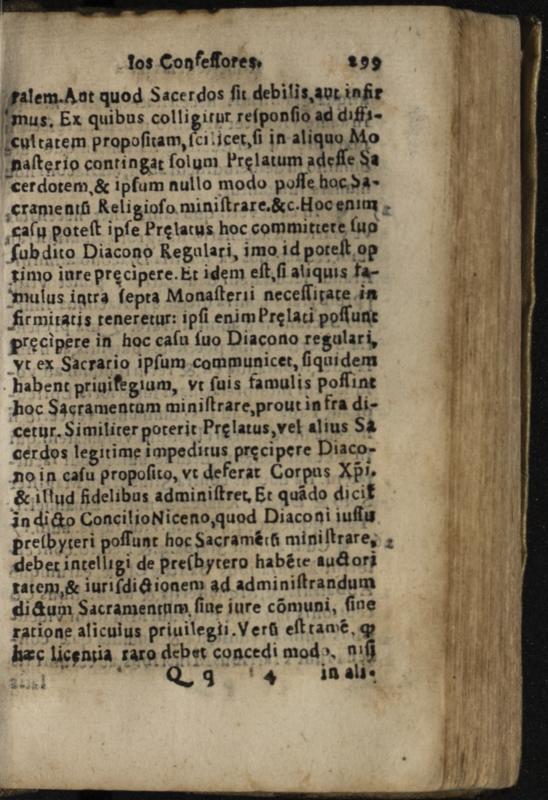 los Confessores. 299
ralem. Aut quod Sacerdos sit debilis, aut infir
mus. Ex quibus colligitur responsio ad diffi-
cultatem propositam, scilicet, si in aliquo Mo
nasterio contingat solum Pręlatum adesse Sa
cerdotem, & ipsum nullo modo posse hoc Sa-
cramentũ Religioso ministrare. &c. Hoc enim
casu potest ipse Pręlatus hoc committere suo
subdito Diacono Regulari, imo id potest op
timo iure pręcipere. Et idem est, si aliquis fa-
mulus intra septa Monasterii necessitate in
firmitatis teneretur: ipsi enim Pręlati possunt
pręcipere in hoc casu suo Diacono regulari,
vt ex Sacrario ipsum communicet, siquidem
habent priuilegium, vt suis famulis possint
hoc Sacramentum ministrare, prout infra di-
cetur. Similiter poterit Pręlatus, vel alius Sa
cerdos legitime impeditus pręcipere Diaco-
no in casu proposito, vt deferat Corpus Xp̃i.
& illud fidelibus administret. Et quãdo dicit
in dicto Concilio Niceno, quod Diaconi iussu
presbyteri possunt hoc Sacramẽtũ ministrare,
debet intelligi de presbytero habẽte auctori
tatem, & iurisdictionem ad administrandum
dictum Sacramentum, siue iure cõmuni, siue
ratione alicuius priuilegii. Verũ est tamẽ, ꝙ
hæc licentia raro debet concedi modo, nisi
Q q 4 in ali-